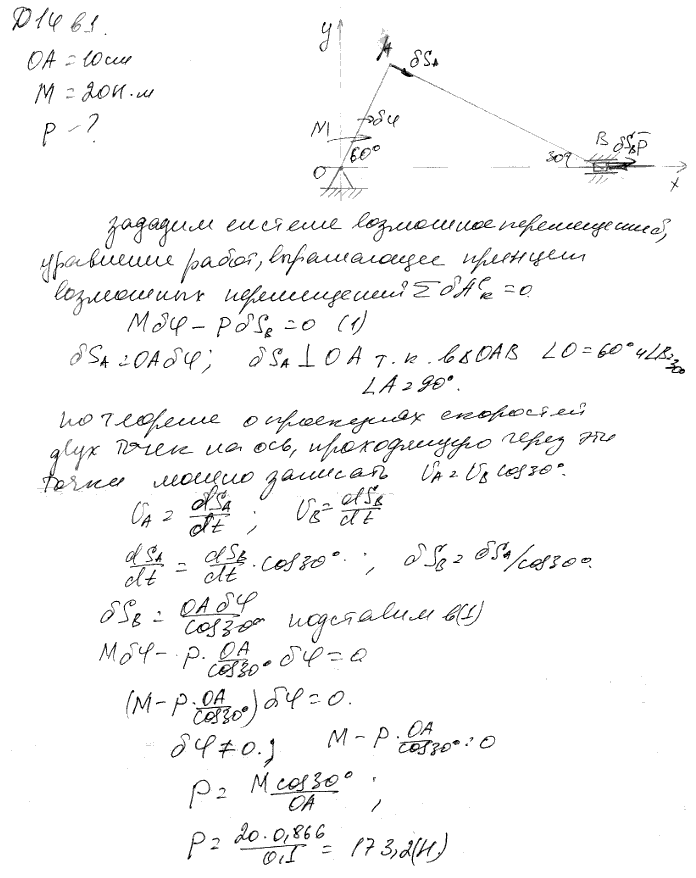 D14 в1.
OA = 10 см
M = 20 Н·м
P – ?
y
A
δSA
δφ
M
60°
O
30°
B
δSB
P̄
x
зададим системе возможное перемещений,
уравнение работ, выражающее принцип
возможных перемещений ΣδAᶜₖ = 0.
Mδφ – PδSB = 0 (1)
δSA = OAδφ; δSA ⊥ OA т.к. в ΔOAB ∠O = 60° и ∠B = 30°
∠A = 90°.
по теореме о проекциях скоростей
двух точек на ось, проходящую через эти
точки можно записать VA = VB cos30°.
VA = dSA/dt ; VB = dSB/dt
dSA/dt = dSB/dt · cos30° ; δSB = δSA/cos30°.
δSB = OAδφ/cos30° подставим в (1)
Mδφ – P · OA/cos30° δφ = 0
(M – P · OA/cos30°) δφ = 0.
δφ ≠ 0.; M – P · OA/cos30° = 0
P = M cos30°/OA ;
P = 20·0,866/0,1 = 173,2 (Н)